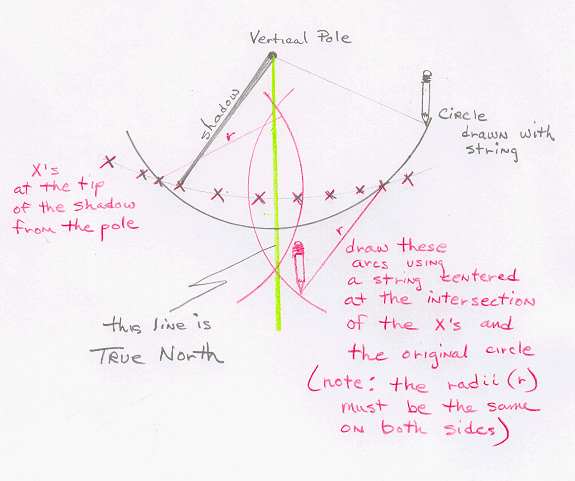 Vertical Pole
shadow
r
Circle
drawn with
string
X's
at the tip
of the shadow
from the pole
r
draw these
arcs using
a string centered
at the intersection
of the X's and
the original circle
(note: the radii (r)
must be the same
on both sides)
this line is
True North